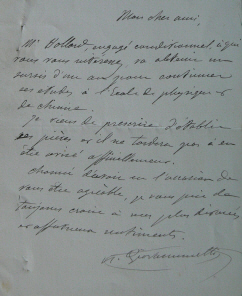 Mon cher ami,
Mr Bollard, engagé conditionnel à qui
vous vous intéressez, va obtenir un
sursis d'un an pour continuer
ses études à l'École de physique &
de chimie.
Je viens de prescrire d'établir
ces pièces et il ne tardera pas à en
être avisé officiellement.
Charmé d'avoir eu l'occasion de
vous être agréable, je vous prie de
toujours croire à mes plus dévoués
et affectueux sentiments.